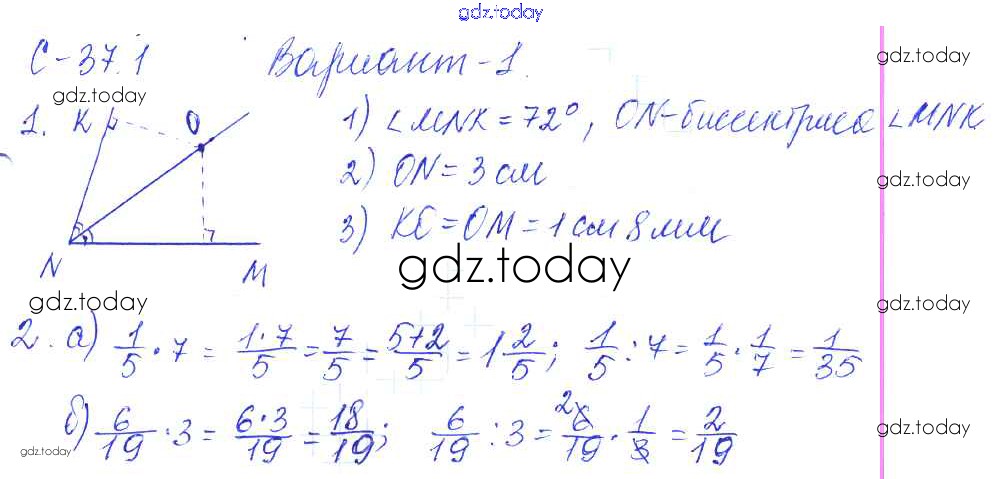 gdz.today
С-37.1 Вариант-1.
gdz.today
gdz.today
1. K O 1) ∠MNK = 72°, ON-биссектриса ∠MNK
2) ON = 3 см
gdz.today
3) KO = OM = 1 см 8 мм
N M
gdz.today
gdz.today
gdz.today
2. а) 1/5 · 7 = 1·7/5 = 7/5 = 5+2/5 = 1 2/5; 1/5 : 7 = 1/5 · 1/7 = 1/35
б) 6/19 · 3 = 6·3/19 = 18/19; 6/19 : 3 = 2 6/19 · 1/3 = 2/19
gdz.today
gdz.today